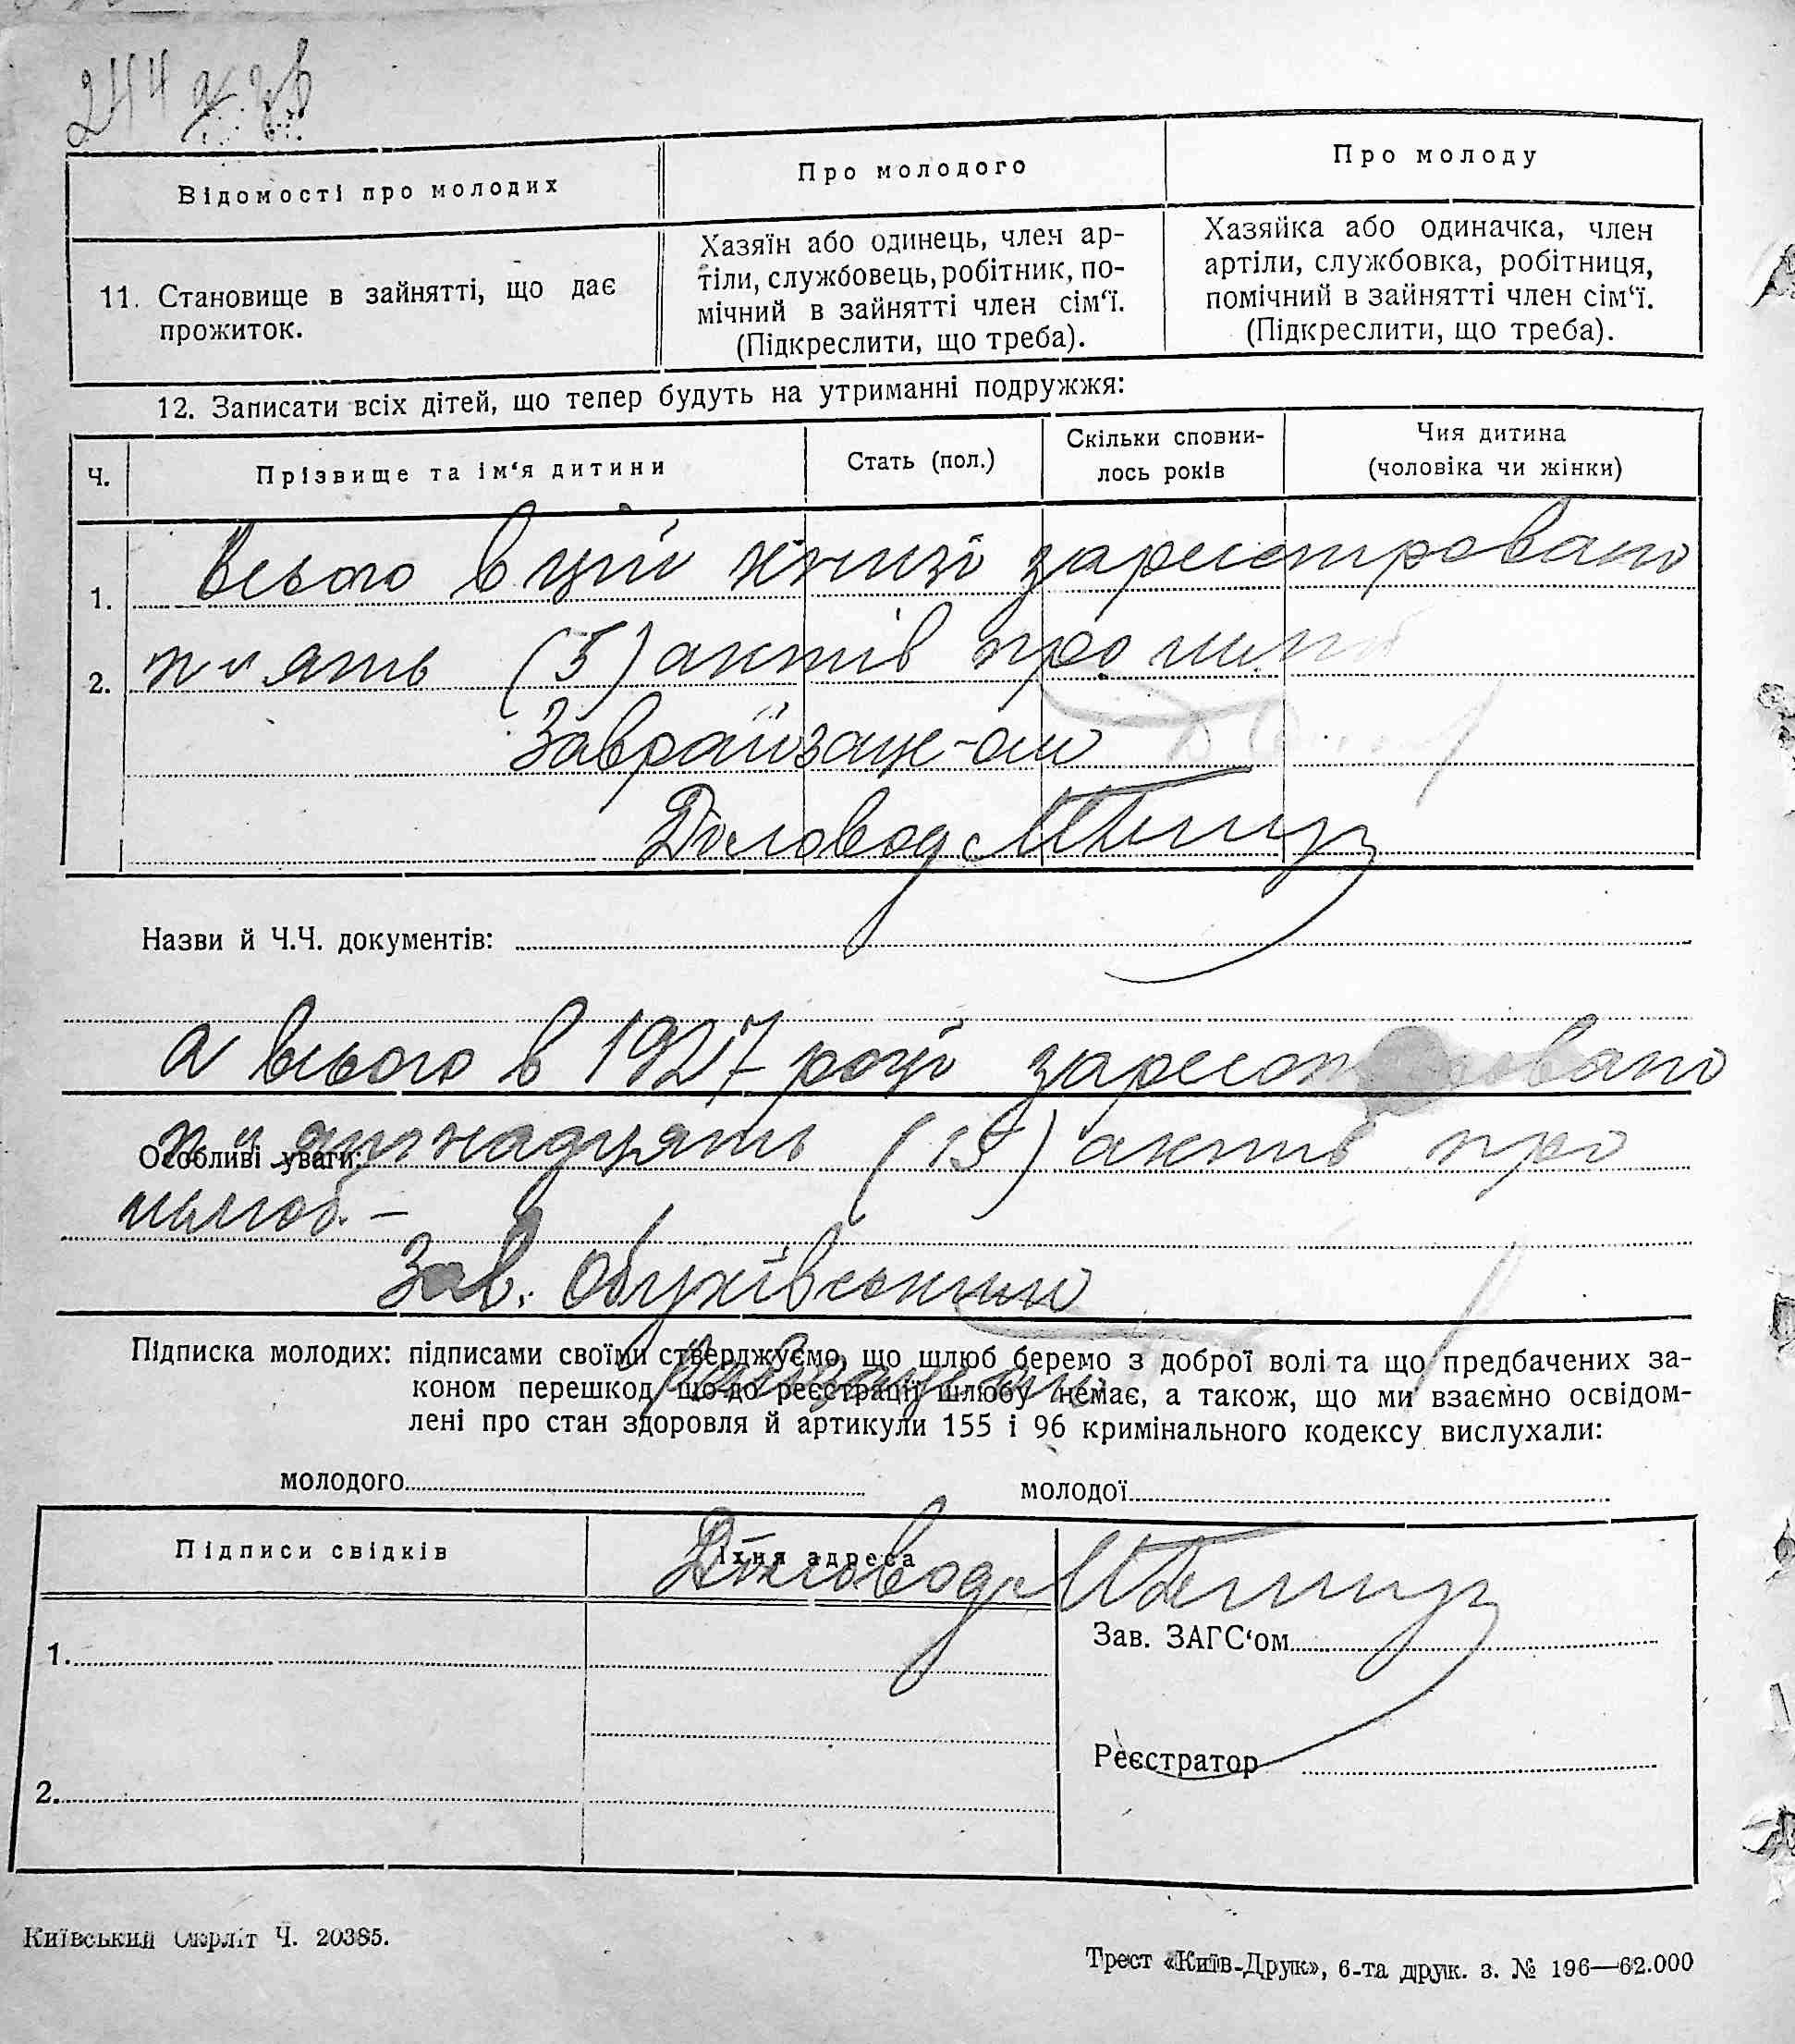 244
Відомості про молодих
Про молодого
Про молоду
11. Становище в зайнятті, що дає прожиток.
Хазяїн або одинець, член ар-
тіли, службовець, робітник, по-
мічний в зайнятті член сім'ї.
(Підкреслити, що треба).
Хазяйка або одиначка, член
артіли, службовка, робітниця,
помічний в зайнятті член сім'ї.
(Підкреслити, що треба).
12. Записати всіх дітей, що тепер будуть на утриманні подружжя:
Ч.
Прізвище та ім'я дитини
Стать (пол.)
Скільки сповни-
лось років
Чия дитина
(чоловіка чи жінки)
1. Всього в цій книзі зареєстровано
2. п'ять (5) актів про шлюб
Заврайзагс-ом
Діловод
Назви й Ч.Ч. документів:
а всього в 1927 році зареєстровано
Особливі уваги: п'ятнадцять (15) актів про
шлюб. —
Зав. Обухівським
Підписка молодих: підписами своїми стверджуємо, що шлюб беремо з доброї волі та що предбачених за-
коном перешкод що-до реєстрації шлюбу немає, а також, що ми взаємно освідом-
лені про стан здоров­ля й артикули 155 і 96 кримінального кодексу вислухали:
молодого
молодої
Підписи свідків
Їхня адреса
Діловод
1.
Зав. ЗАГС'ом
Реєстратор
2.
Київський Окрліт Ч. 20385.
Трест «Київ-Друк», 6-та друк. з. № 196—62.000